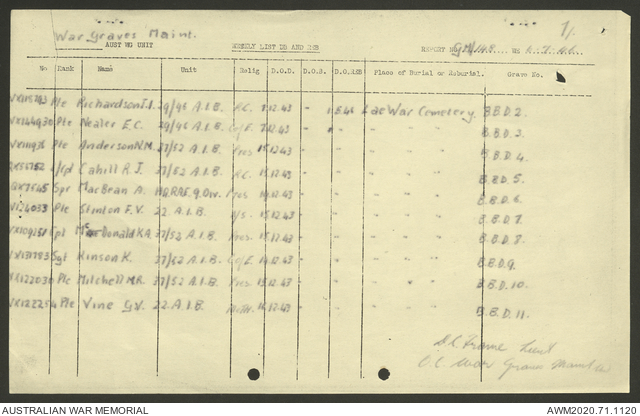 War Graves Maint. 1/.
AUST WG UNIT WEEKLY LIST DB AND REB REPORT No GM/148 WE 6.7.46.
No Rank Name Unit Relig D.O.D. D.O.B. D.O.REB Place of Burial or Reburial. Grave No.
Pte Richardson 29/46 A.I.B. R.C. 7.12.43 - Lae War Cemetery. B.B.D.2.
VX144930 Pte Nealer E.C. 29/46 A.I.B. C/E 7.12.43 - " " " B.B.D.3.
Pte Anderson N.M. 37/52 A.I.B. Pres 15.12.43 - " " " B.B.D.4.
Cahill R.J. 37/52 A.I.B. R.C. 12.43 - " " " B.B.D.5.
Spr MacBean A. HQ.RAE.9.Div. Pres 12.43 - " " " B.B.D.6.
Pte Stinton F.V. 22 A.I.B. 12.43 - " " " B.B.D.7.
Cpl McDonald K.A. 37/52 A.I.B. Pres. 12.43 - " " " B.B.D.8.
Sgt Hinson K. 37/52 A.I.B. C/E 12.43 - " " " B.B.D.9.
VX122030 Pte Mitchell M.R. 37/52 A.I.B. Pres 12.43 - " " " B.B.D.10.
VX122254 Pte Vine G.V. 22 A.I.B. Meth. 12.43 - " " " B.B.D.11.
Frame Lieut
O.C. War Graves Maint
AUSTRALIAN WAR MEMORIAL AWM2020.71.1120